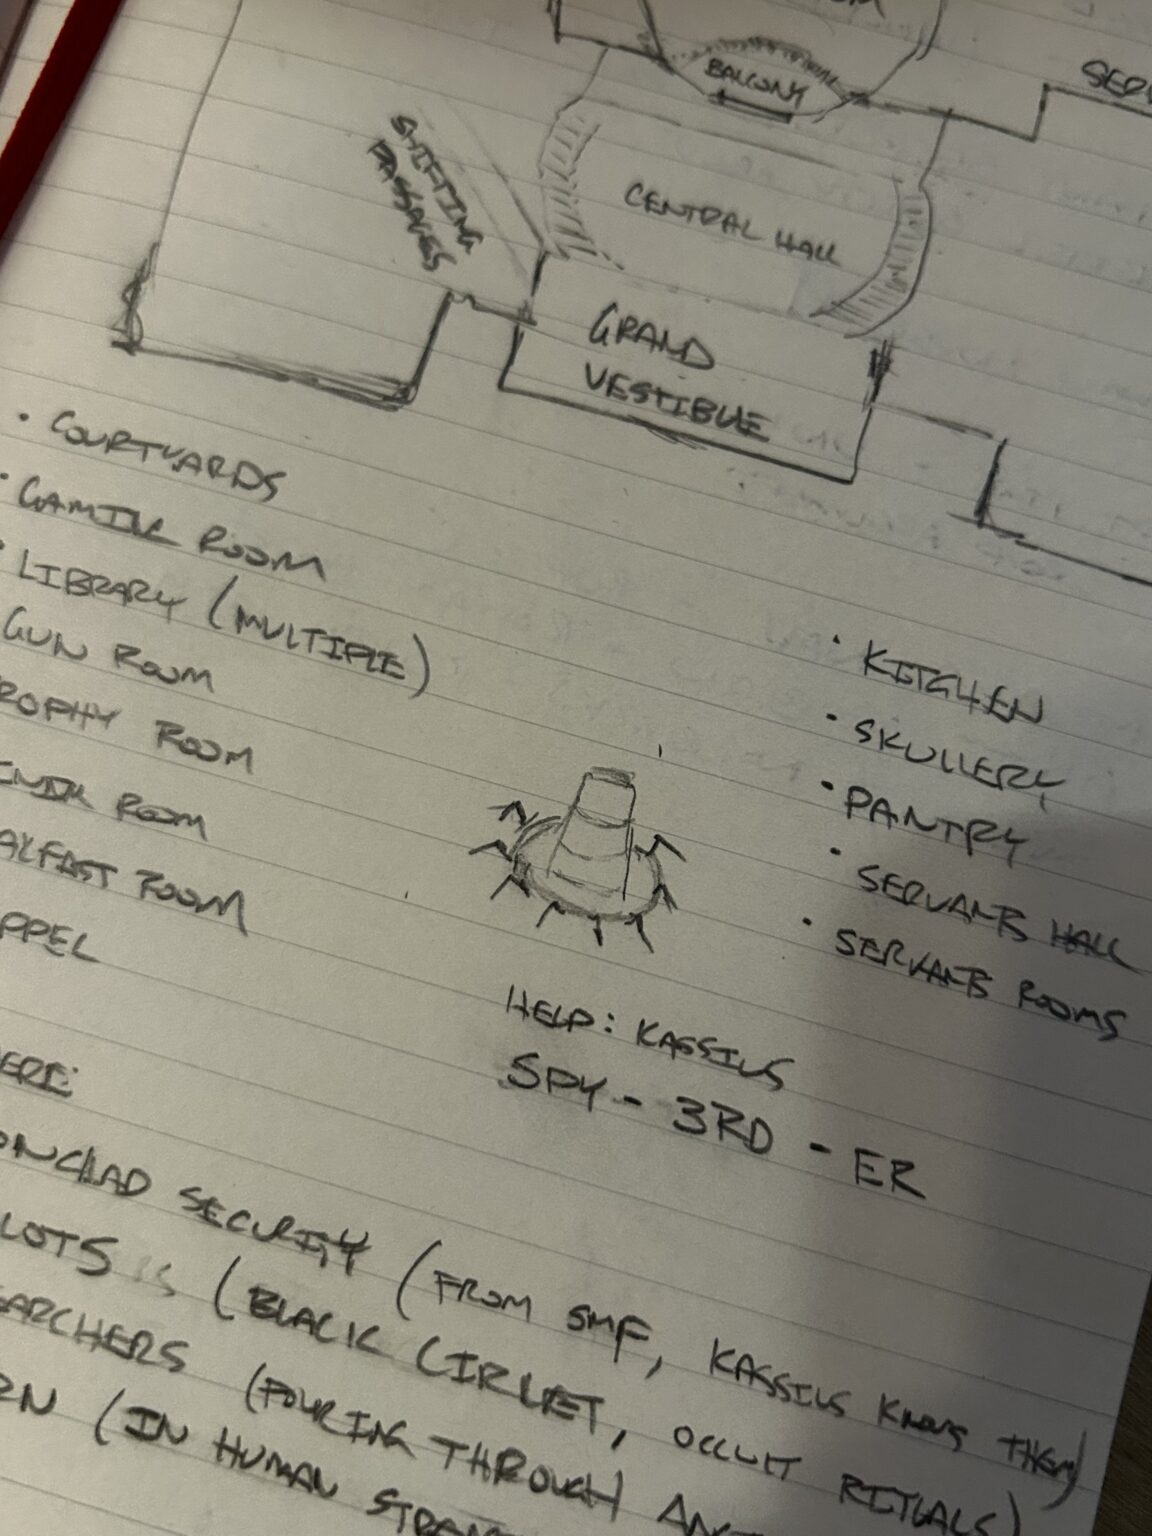 BALCONY
SHIFTING
PASSAGES
CENTRAL HALL
GRAND
VESTIBULE
• COURTYARDS
• GAMING ROOM
• LIBRARY (MULTIPLE)
GUN ROOM
ROPHY ROOM
ROOM
AKFAST ROOM
PPEL
• KITCHEN
• SKULLERY
• PANTRY
• SERVANTS HALL
• SERVANTS ROOMS
HELP: KASSIUS
SPY - 3RD - ER
ERE:
ONCLAD SECURITY (FROM SMF, KASSIUS KNOWS THEM)
LOTS (BLACK CIRLET, OCCULT RITUALS)
EARCHERS (POURING THROUGH
RN (IN HUMAN